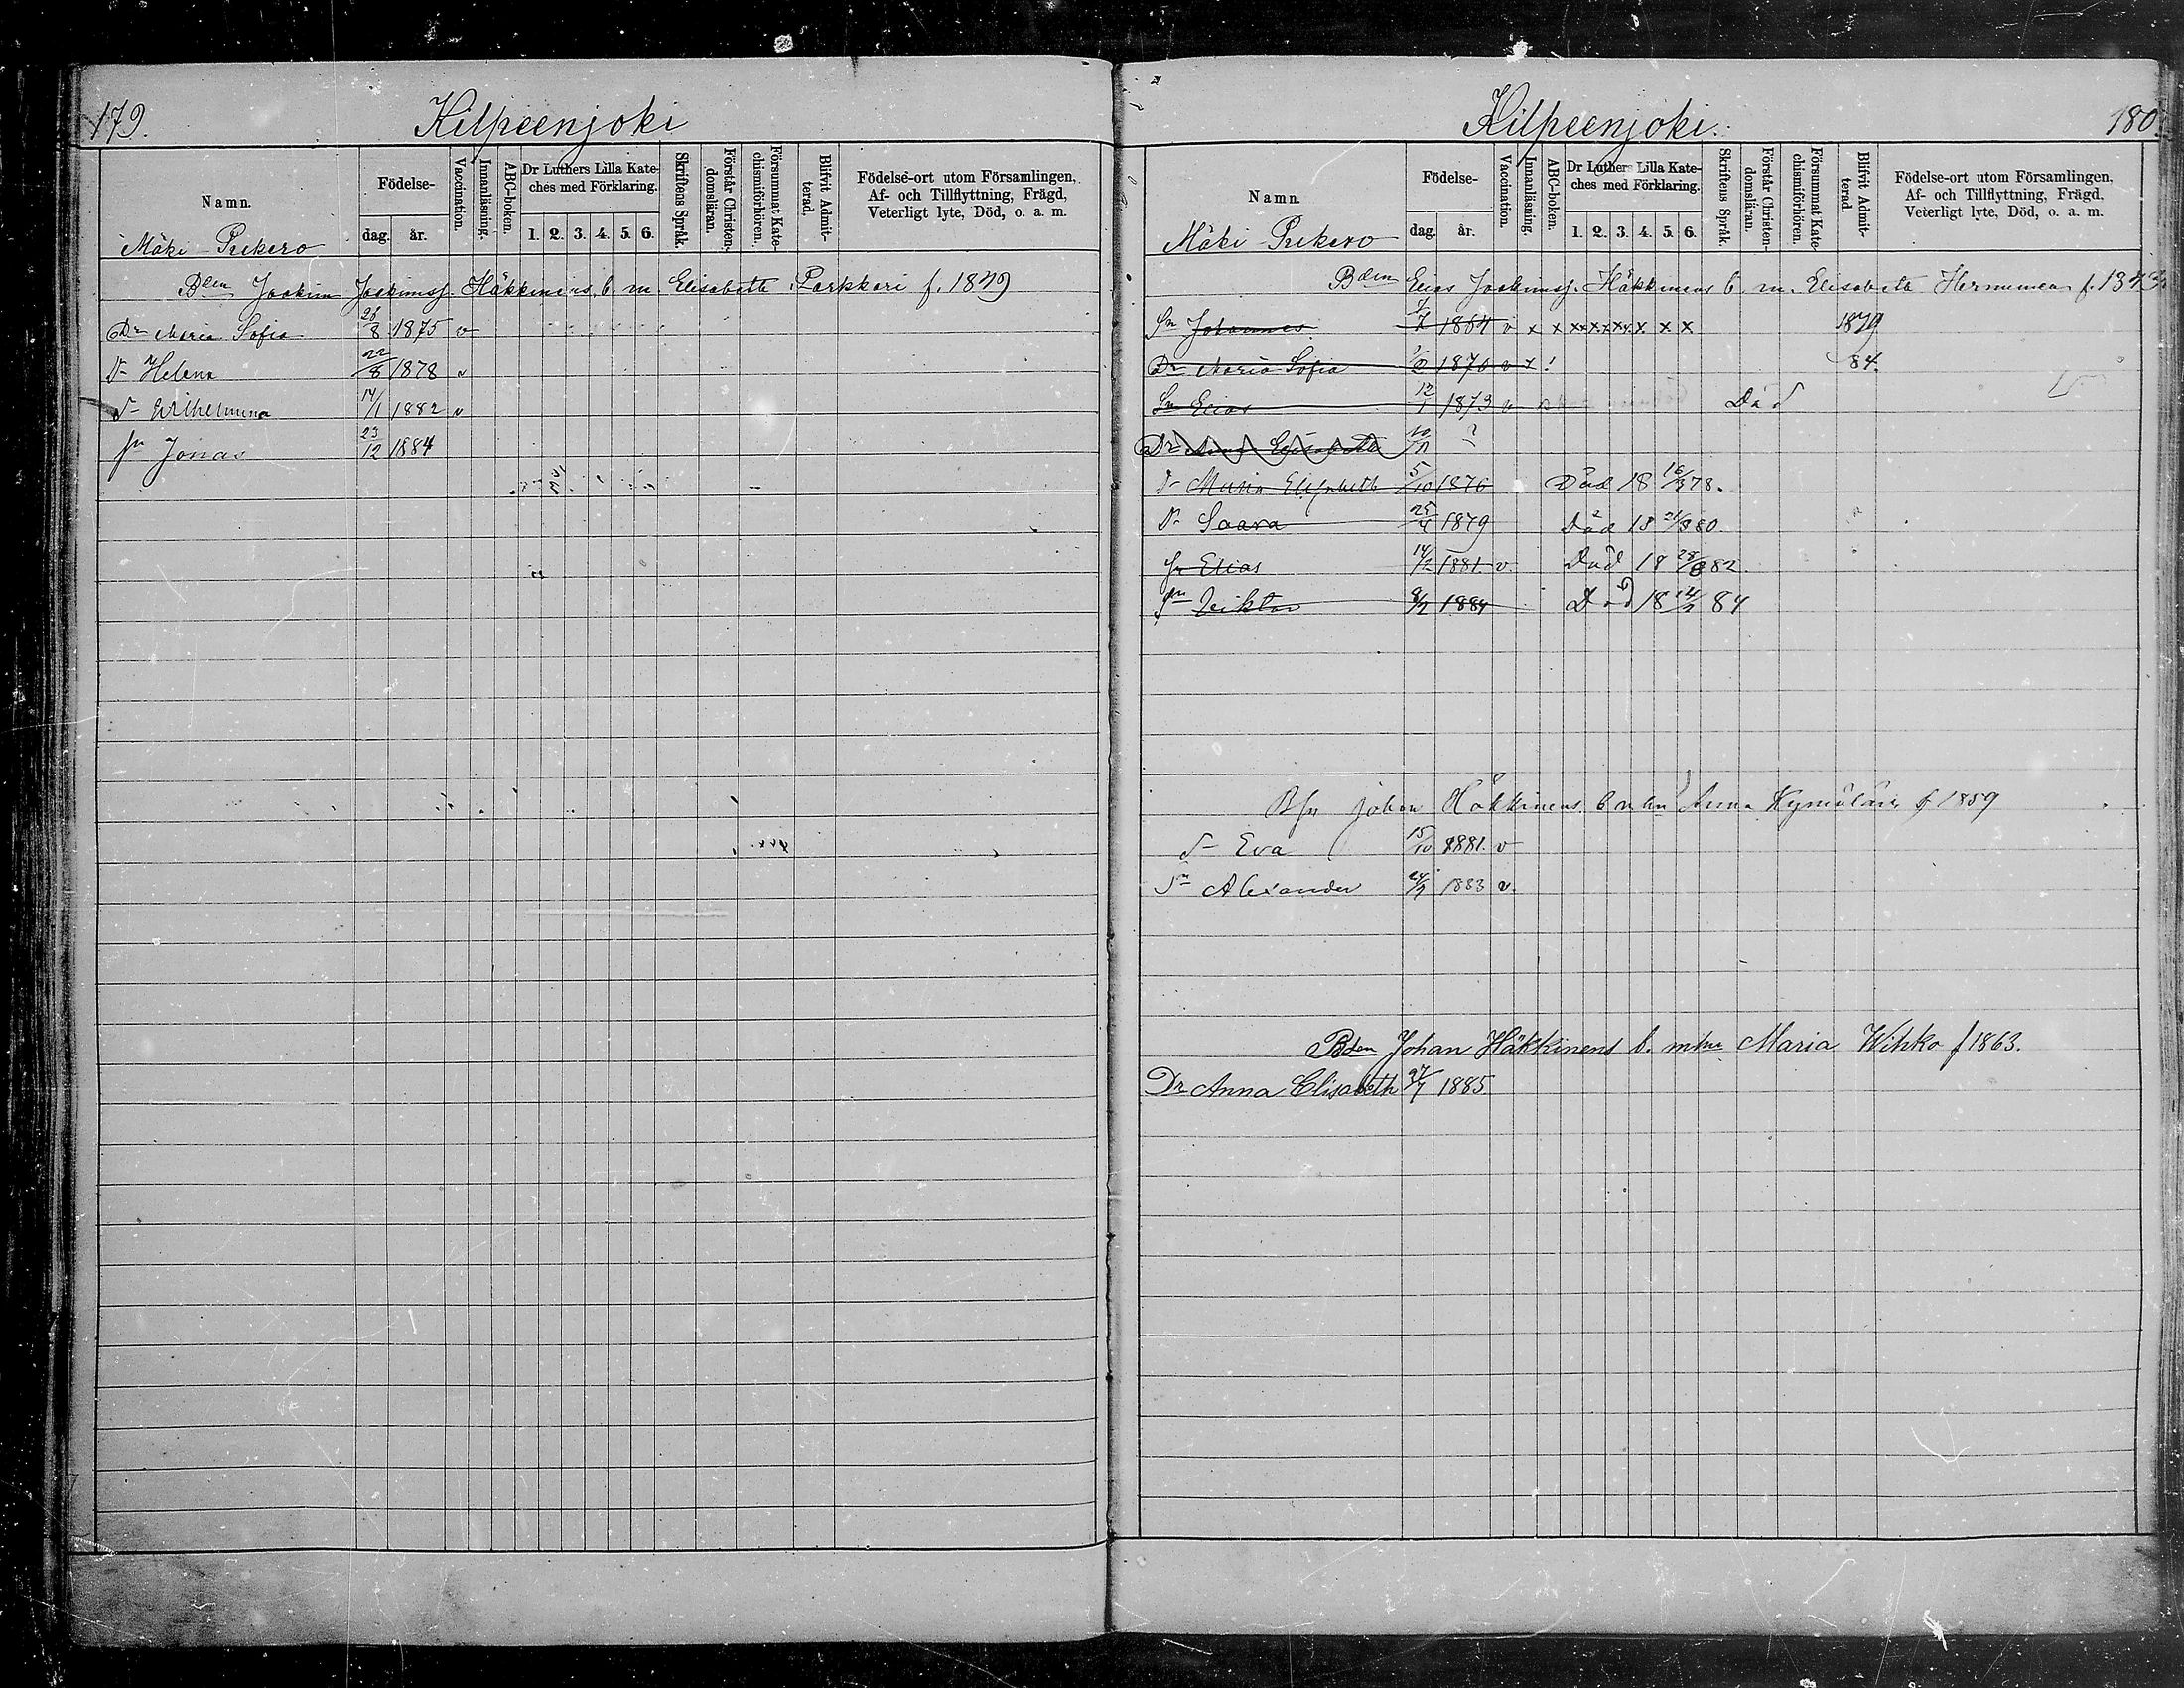 179.
Kilpeenjoki
Namn.
Födelse-
dag. år.
Vaccination.
Innanläsning.
ABC-boken.
Dr Luthers Lilla Kate-
ches med Förklaring.
1. 2. 3. 4. 5. 6.
Skriftens Språk.
Förstår Christen-
domsläran.
Försummat Kate-
chismiförhören.
Blifvit Admit-
terad.
Födelse-ort utom Församlingen,
Af- och Tillflyttning, Frägd,
Veterligt lyte, Död, o. a. m.
Mäki Pukero
Bden Joakim Joakimsj. Häkkinens b. m. Elisabeth Parkkari f. 1849
Dr Maria Sofia 26/8 1875 v
Dr Helena 22/8 1878 v
Dr Wilhelmina 14/1 1882 v
Sn Jonas 23/12 1884
Kilpeenjoki.
180.
Namn.
Födelse-
dag. år.
Vaccination.
Innanläsning.
ABC-boken.
Dr Luthers Lilla Kate-
ches med Förklaring.
1. 2. 3. 4. 5. 6.
Skriftens Språk.
Förstår Christen-
domsläran.
Försummat Kate-
chismiförhören.
Blifvit Admit-
terad.
Födelse-ort utom Församlingen,
Af- och Tillflyttning, Frägd,
Veterligt lyte, Död, o. a. m.
Mäki Pukero
Bden Elias Joakimsj. Häkkinens b. m. Elisabeta Hernunen
Sn Johannes 1864 v x x x x x x x x x 1879
Dr Maria Sofia 1870 v x ! 84.
Sn Elias 12/1 1873 v Död
Dr Anna Elisabeth 10/11 ?
Dr Maria Elisabeth 5/10 1876 Död 18 16/3 78.
Dr Saara 25/4 1879 Död 18 21/3 80.
Sn Elias 14/2 1881. v. Död 18 28/8 82
Sn Viktor 1884 Död 18 84
Johan Häkkinens b. m. hu Anna Kymäläin f 1859
Dr Eva 15/10 1881. v
Sn Alexander 1883 v.
Bden Johan Häkkinens b. m hu Maria Wihko f 1863.
Dr Anna Elisabeth 27/7 1885.